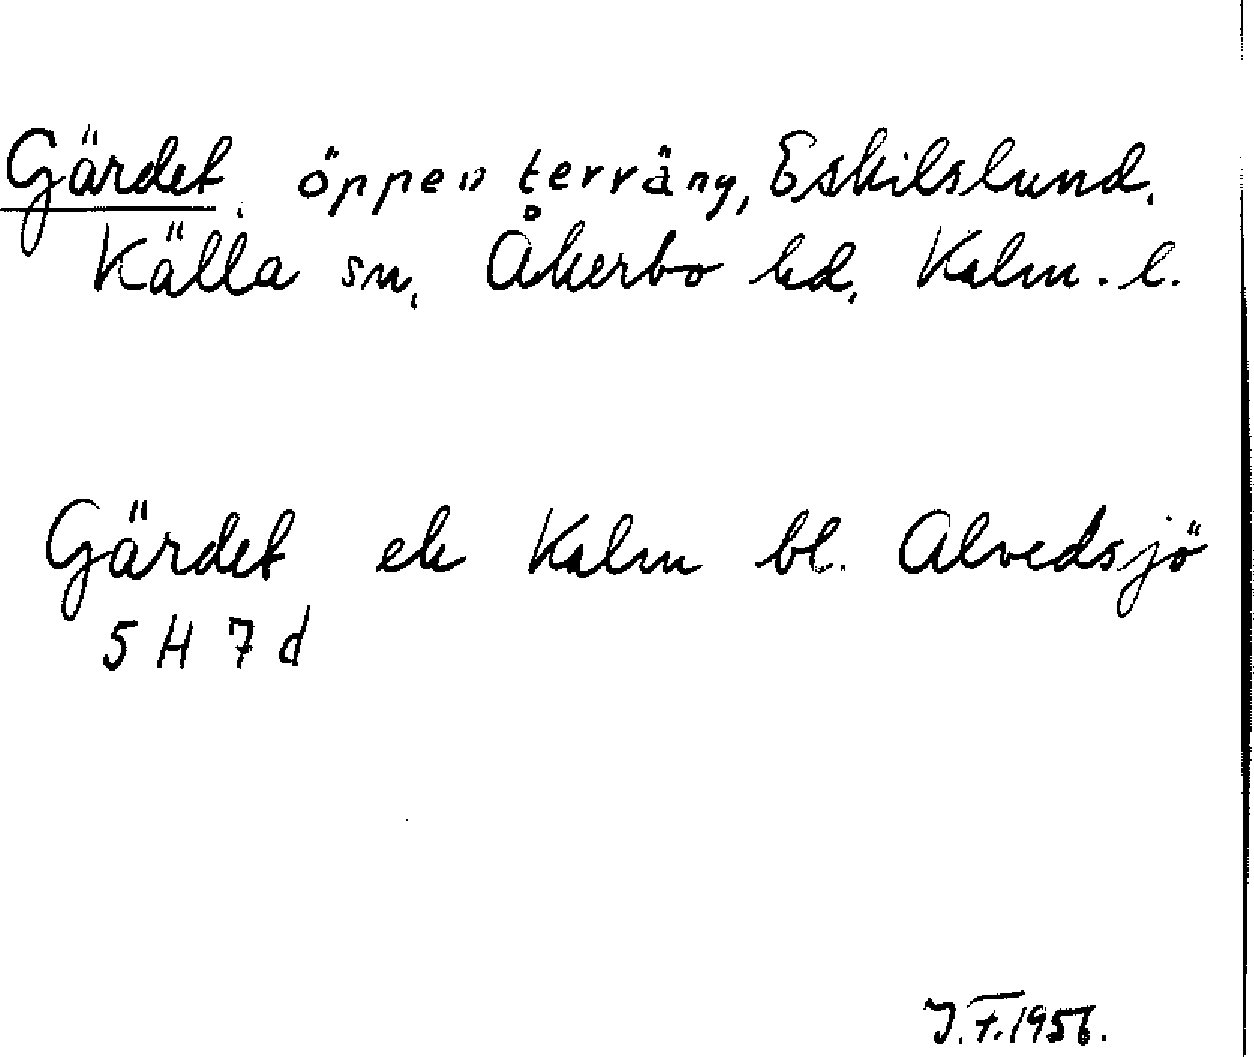 Gärdet, öppen terräng, Eskilslund,
Källa sn, Åkerbo hd, Kalm. l.
Gärdet ek Kalm bl. Alvedsjö
5 H 7 d
J.F. 1956.